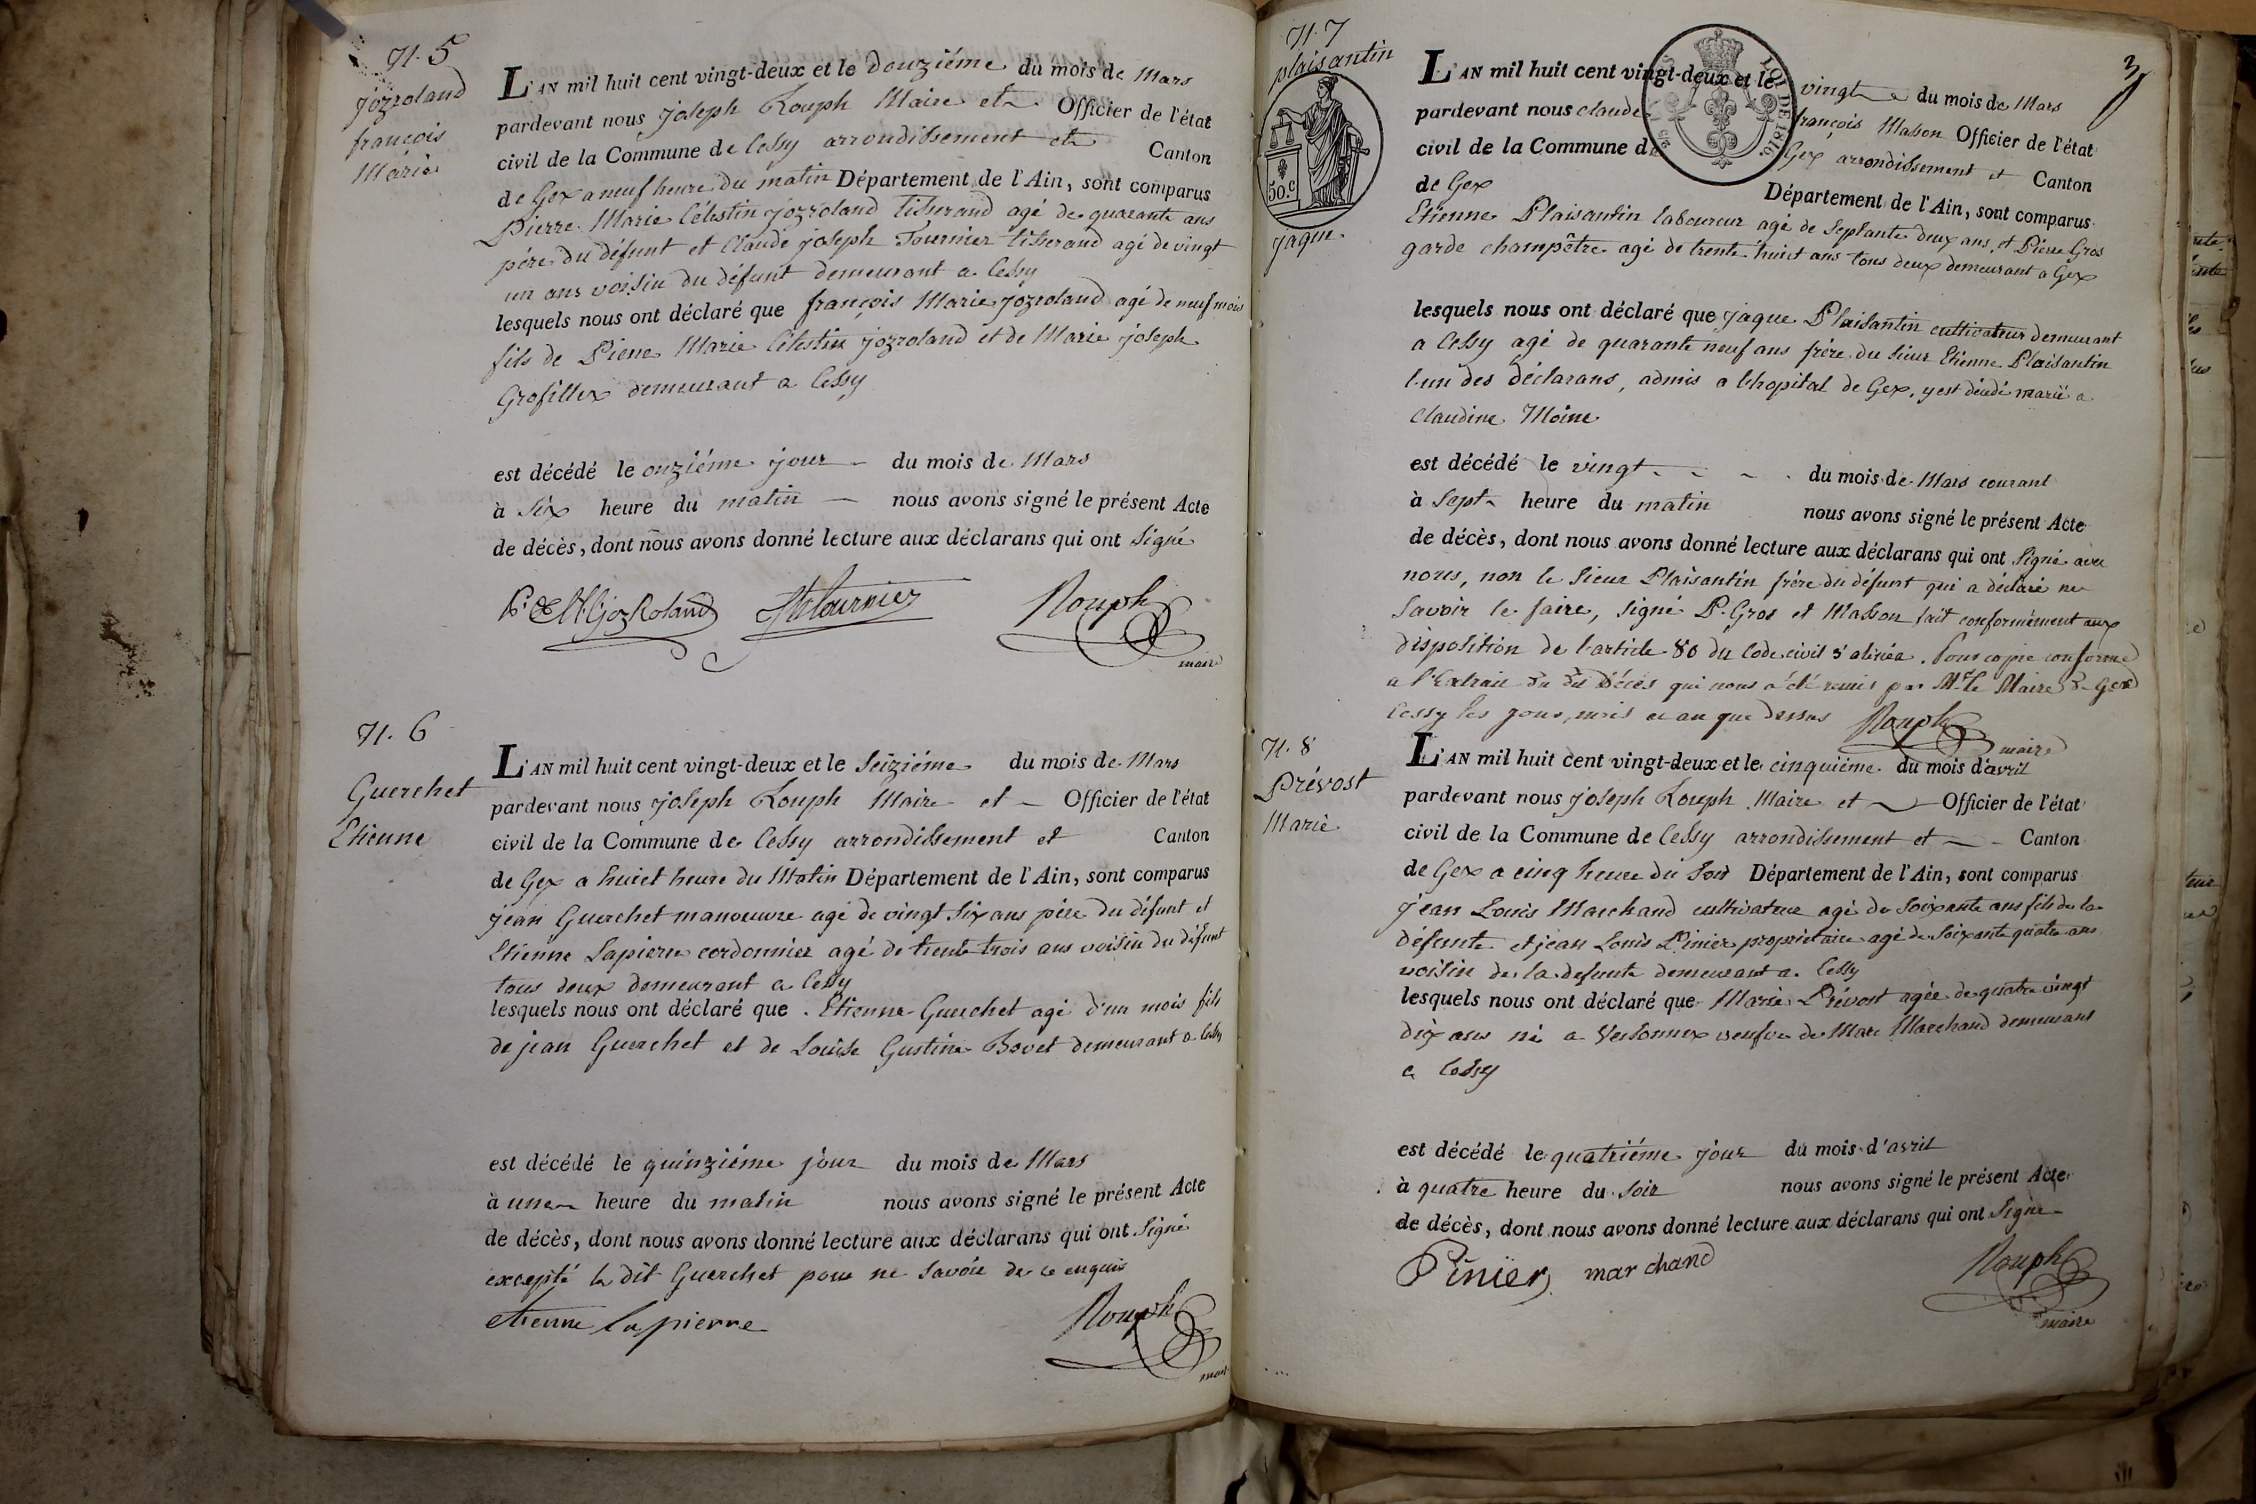 N. 5
jozroland
françois
Marie
L'AN mil huit cent vingt-deux et le douziéme du mois de Mars
pardevant nous joseph Rouph Maire et Officier de l'état
civil de la Commune de Cessy arrondissement et Canton
de Gex a neuf heure du matin Département de l'Ain, sont comparus
Pierre Marie Célestin jozroland tisserand agé de quarante ans
pére du défunt et Claude joseph Tournier tisserand agé de vingt
un ans voisin du défunt demeurant a Cessy
lesquels nous ont déclaré que françois Marie jozroland agé de neuf mois
fils de Pierre Marie Célestin jozroland et de Marie joseph
Grosfillex demeurant a Cessy
est décédé le onziéme jour du mois de Mars
à six heure du matin nous avons signé le présent Acte
de décès, dont nous avons donné lecture aux déclarans qui ont signé
jozRoland Tournier Rouph
maire
N. 6
Guerchet
Etienne
L'AN mil huit cent vingt-deux et le seiziéme du mois de Mars
pardevant nous joseph Rouph Maire et Officier de l'état
civil de la Commune de Cessy arrondissement et Canton
de Gex a huict heure du Matin Département de l'Ain, sont comparus
jean Guerchet manoeuvre agé de vingt six ans pére du défunt et
Etienne Lapierre cordonnier agé de trente trois ans voisin du défunt
tous deux demeurant a Cessy
lesquels nous ont déclaré que Etienne Guerchet agé d'un mois fils
de jean Guerchet et de Louise Gustine Bovet demeurant a Cessy
est décédé le quinziéme jour du mois de Mars
à une heure du matin nous avons signé le présent Acte
de décès, dont nous avons donné lecture aux déclarans qui ont signé
excepté le dit Guerchet pour ne savoir de ce enquis
etienne lapierre Rouph
maire
3
N. 7
plaisantin
50.c
jaque
LOI DE 1816.
L'AN mil huit cent vingt-deux et le vingt du mois de Mars
pardevant nous claude françois Masson Officier de l'état
civil de la Commune de Gex arrondissement et Canton
de Gex Département de l'Ain, sont comparus
Etienne Plaisantin laboureur agé de septante deux ans, et Pierre Gros
garde champêtre agé de trente huict ans tous deux demeurant a Gex
lesquels nous ont déclaré que jaque Plaisantin cultivateur demeurant
a Cessy agé de quarante neuf ans frére du sieur Etienne Plaisantin
l'un des déclarans, admis a l'hopital de Gex, y est décédé marié a
Claudine Moine
est décédé le vingt du mois de Mars courant
à sept heure du matin nous avons signé le présent Acte
de décès, dont nous avons donné lecture aux déclarans qui ont signé avec
nous, non le sieur Plaisantin frére du défunt qui a déclaré ne
savoir le faire, signé P. Gros et Masson fait conformément aux
disposition de l'article 80 du Code civil alinéa. Pour copie conforme
a l'Extrait du décés qui nous a été remis par Mr. le Maire de Gex
Cessy les jour, mois et an que dessus Rouph
maire
N. 8
Prévost
Marie
L'AN mil huit cent vingt-deux et le cinquiéme du mois d'avril
pardevant nous joseph Rouph Maire et Officier de l'état
civil de la Commune de Cessy arrondissement et Canton
de Gex a cinq heure du soir Département de l'Ain, sont comparus
jean Louis Marchand cultivateur agé de soixante ans fils de la
défunte et jean Louis Pinier propriétaire agé de soixante quatre ans
voisin de la defunte demeurant a Cessy
lesquels nous ont déclaré que Marie Prévost agée de quatre vingt
dix ans né a Versonnex veufve de Marc Marchand demeurant
a Cessy
est décédé le quatriéme jour du mois d'avril
à quatre heure du soir nous avons signé le présent Acte
de décès, dont nous avons donné lecture aux déclarans qui ont signé
Pinier marchand Rouph
maire